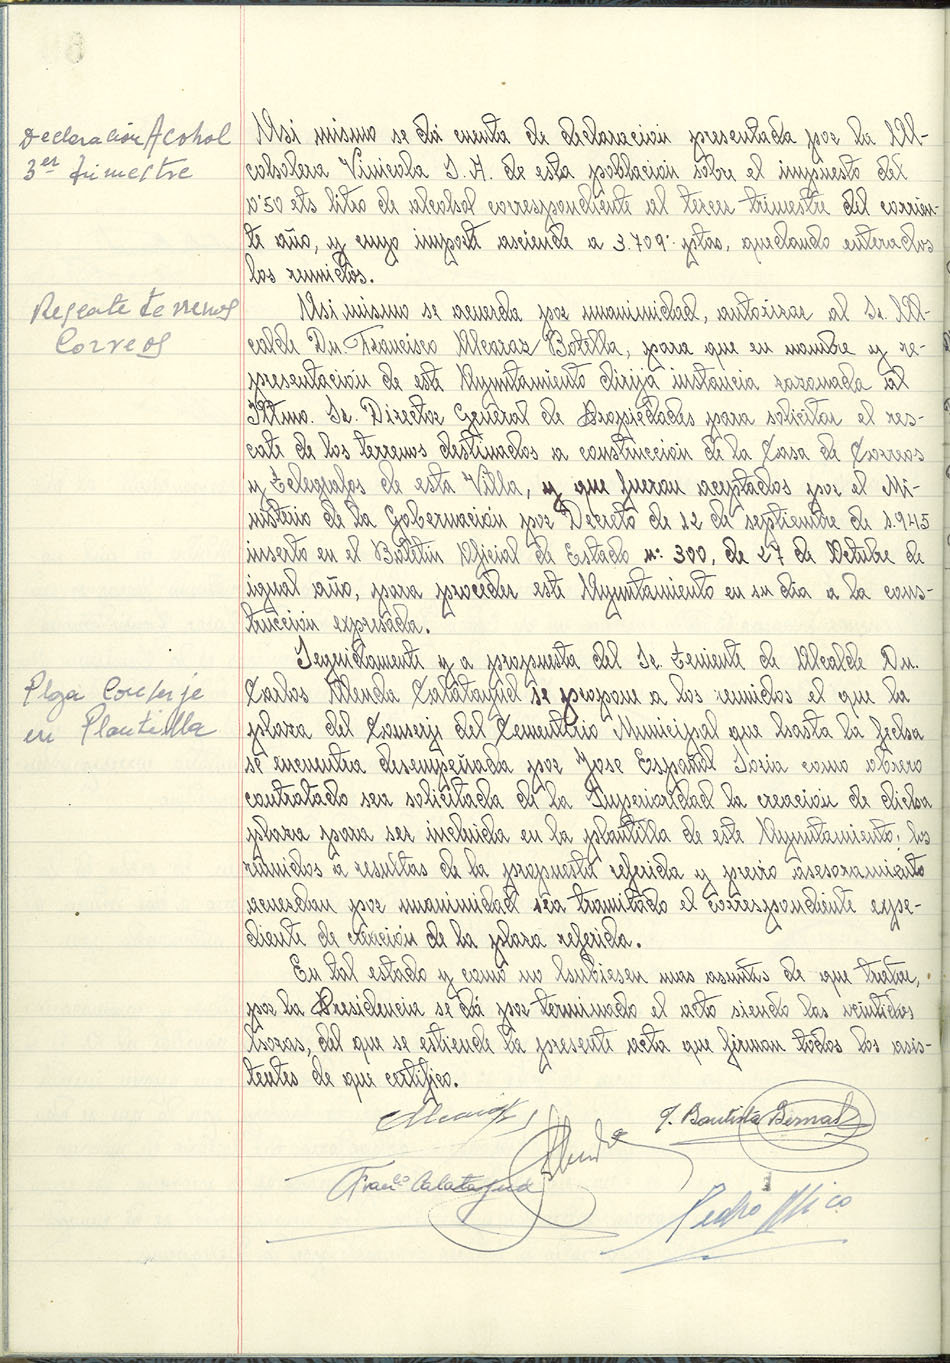 Declaración Acohol
3er trimestre
Asi mismo se dá cuenta de declaración presentada por la Al-
coholera Vinicola S. A. de esta población sobre el impuesto del
0'50 cts litro de alcohol correspondiente al tercer trimestre del corrien-
te año, y cuyo importe asciende a 3.709'- ptas, quedando enterados
los reunidos.
Rescate terrenos
Correos
Asi mismo se acuerda por unanimidad, autorizar al Sr. Al-
calde Dn. Francisco Alcaraz Botella, para que en nombre y re-
presentación de este Ayuntamiento dirija instancia razonada al
Iltmo. Sr. Director General de Propiedades para solicitar el res-
cate de los terrenos destinados a construcción de la Casa de Correos
y Telegrafos de esta Villa, y que fueran aceptados por el Mi-
nisterio de la Gobernación por Decreto de 12 de septiembre de 1.945
inserto en el Boletin Oficial de Estado nº: 300, de 27 de Octubre de
igual año, para proceder este Ayuntamiento en su dia a la cons-
trucción expresada.
Plza Conserje
en Plantilla
Seguidamente y a propuesta del Sr. Teniente de Alcalde Dn.
Carlos Calatayud se propone a los reunidos el que la
plaza del Conserje del Cementerio Municipal que hasta la fecha
se encuentra desempeñada por Jose Español Soria como obrero
contratado sea solicitada de la Superioridad la creación de dicha
plaza para ser incluida en la plantilla de este Ayuntamiento; los
reunidos a resultas de la propuesta referida y previo asesoramiento
acuerdan por unanimidad sea tramitado el correspondiente expe-
diente de creación de la plaza referida.
En tal estado y como no hubiesen mas asuntos de que tratar,
por la Presidencia se dá por terminado el acto siendo las veintidos
horas, del que se extiende la presente acta que firman todos los asis-
tentes de que certifico.
J. Bautista Bernal
Franco Calatayud
Pedro Mico